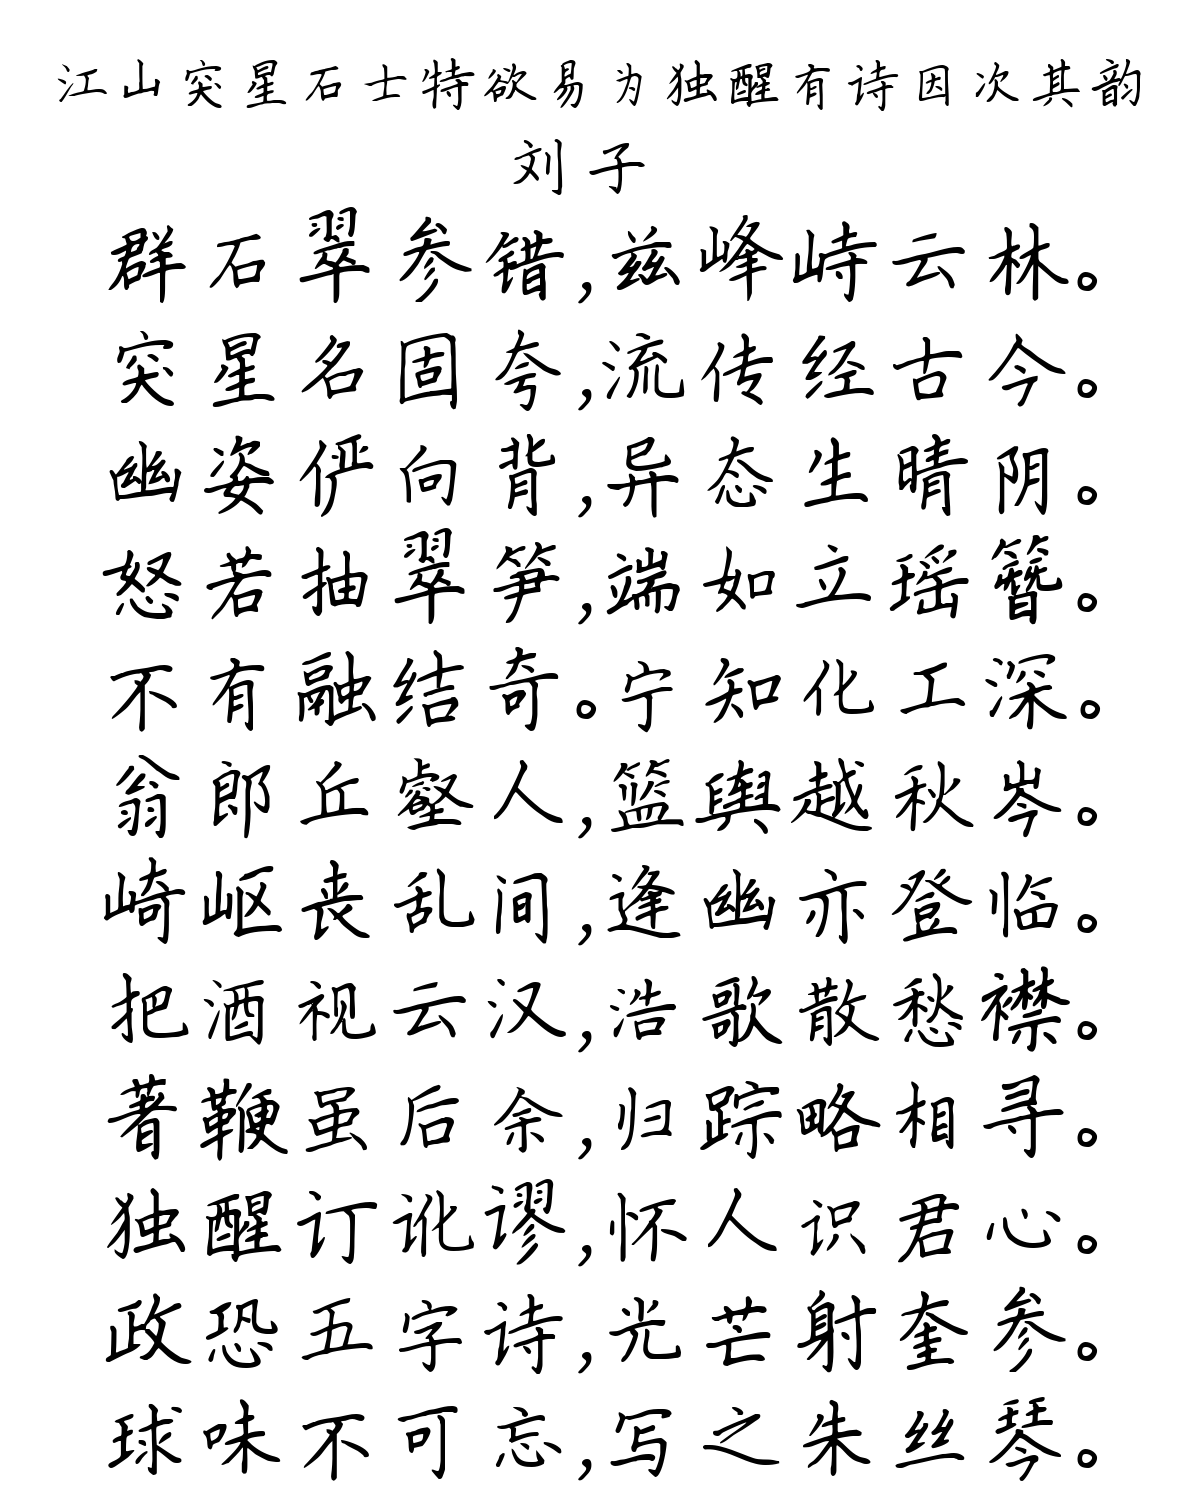 江山突星石士特欲易为独醒有诗因次其韵
刘子
群石翠参错,兹峰峙云林。
突星名固夸,流传经古今。
幽姿俨向背,异态生晴阴。
怒若抽翠笋,端如立瑶簪。
不有融结奇。宁知化工深。
翁郎丘壑人,篮舆越秋岑。
崎岖丧乱间,逢幽亦登临。
把酒视云汉,浩歌散愁襟。
著鞭虽后余,归踪略相寻。
独醒订讹谬,怀人识君心。
政恐五字诗,光芒射奎参。
球味不可忘,写之朱丝琴。